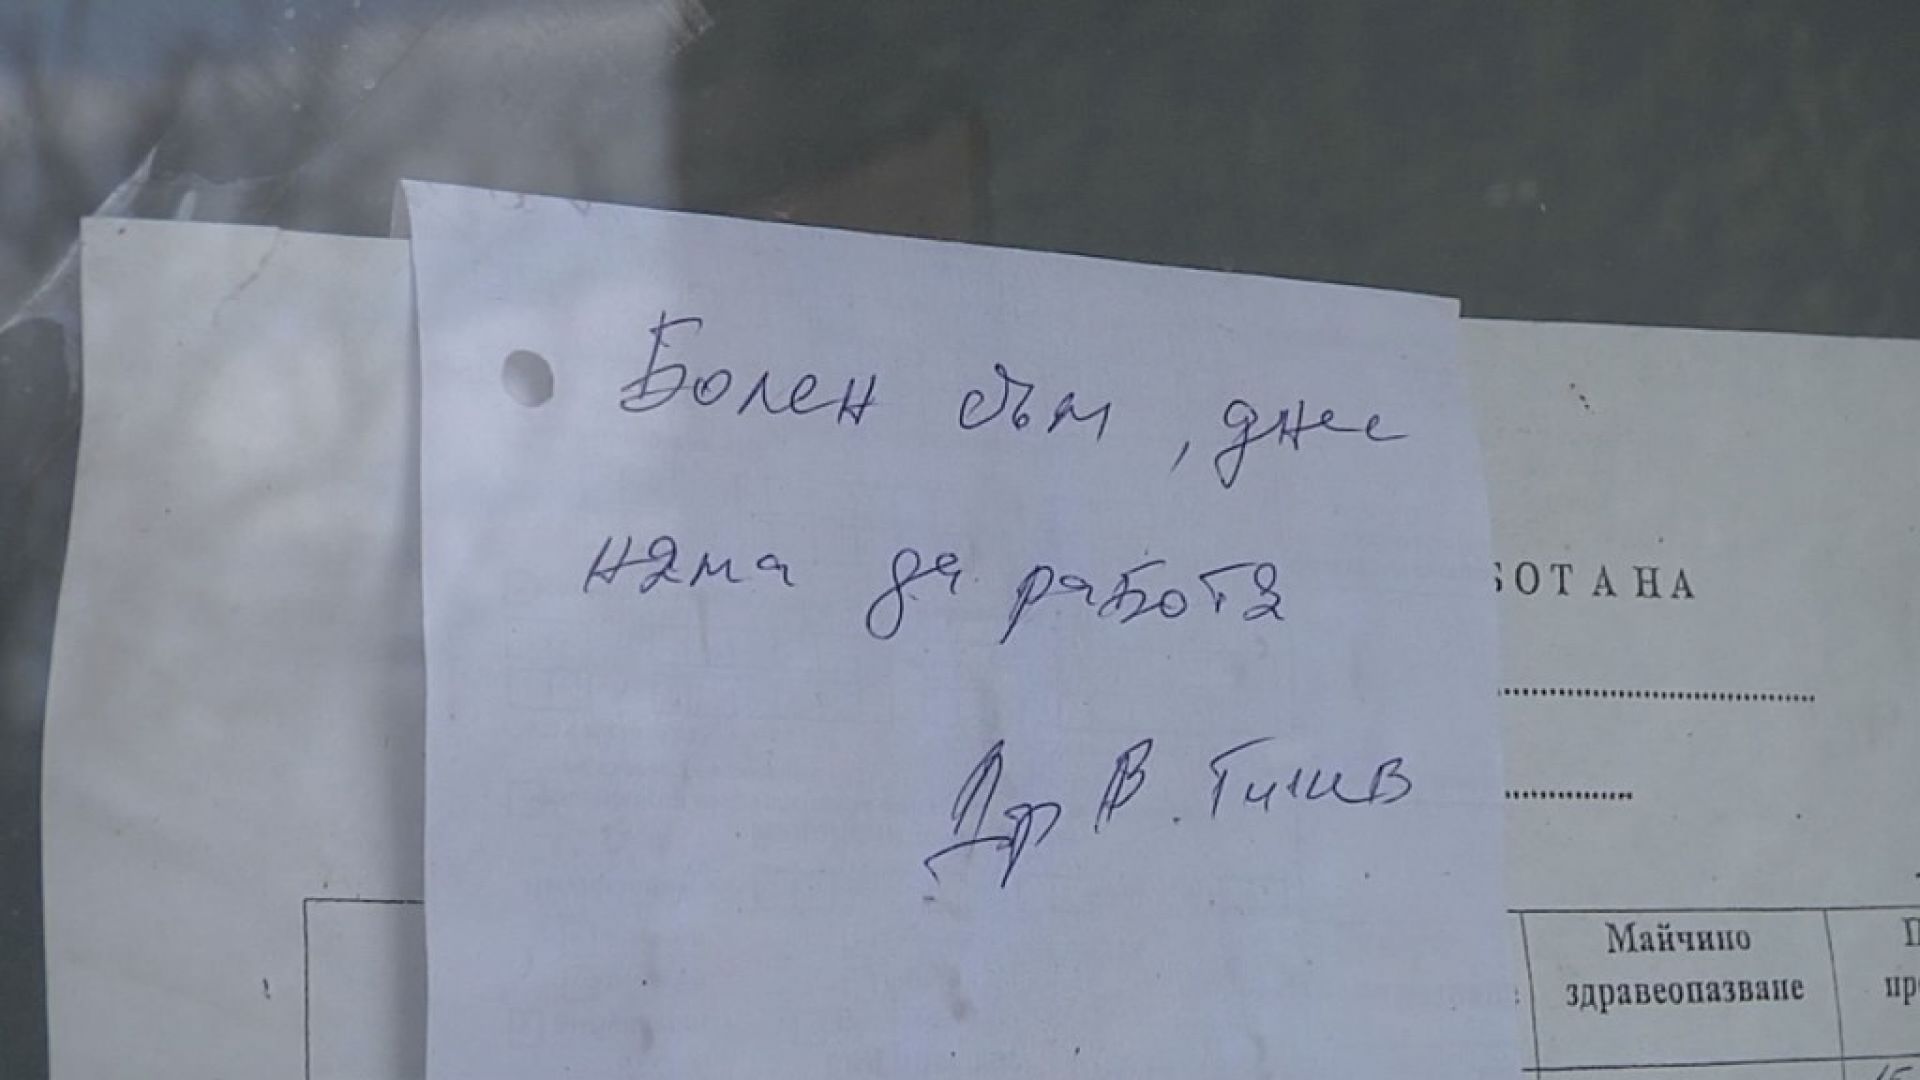 Болен съм, днес
няма да работя
Др В.
БОТА НА
Майчино
здравеопазване